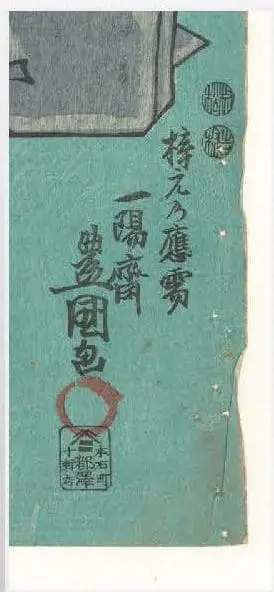 梓元乃應需
一陽齋
豊國画
本石町
都澤
十軒店